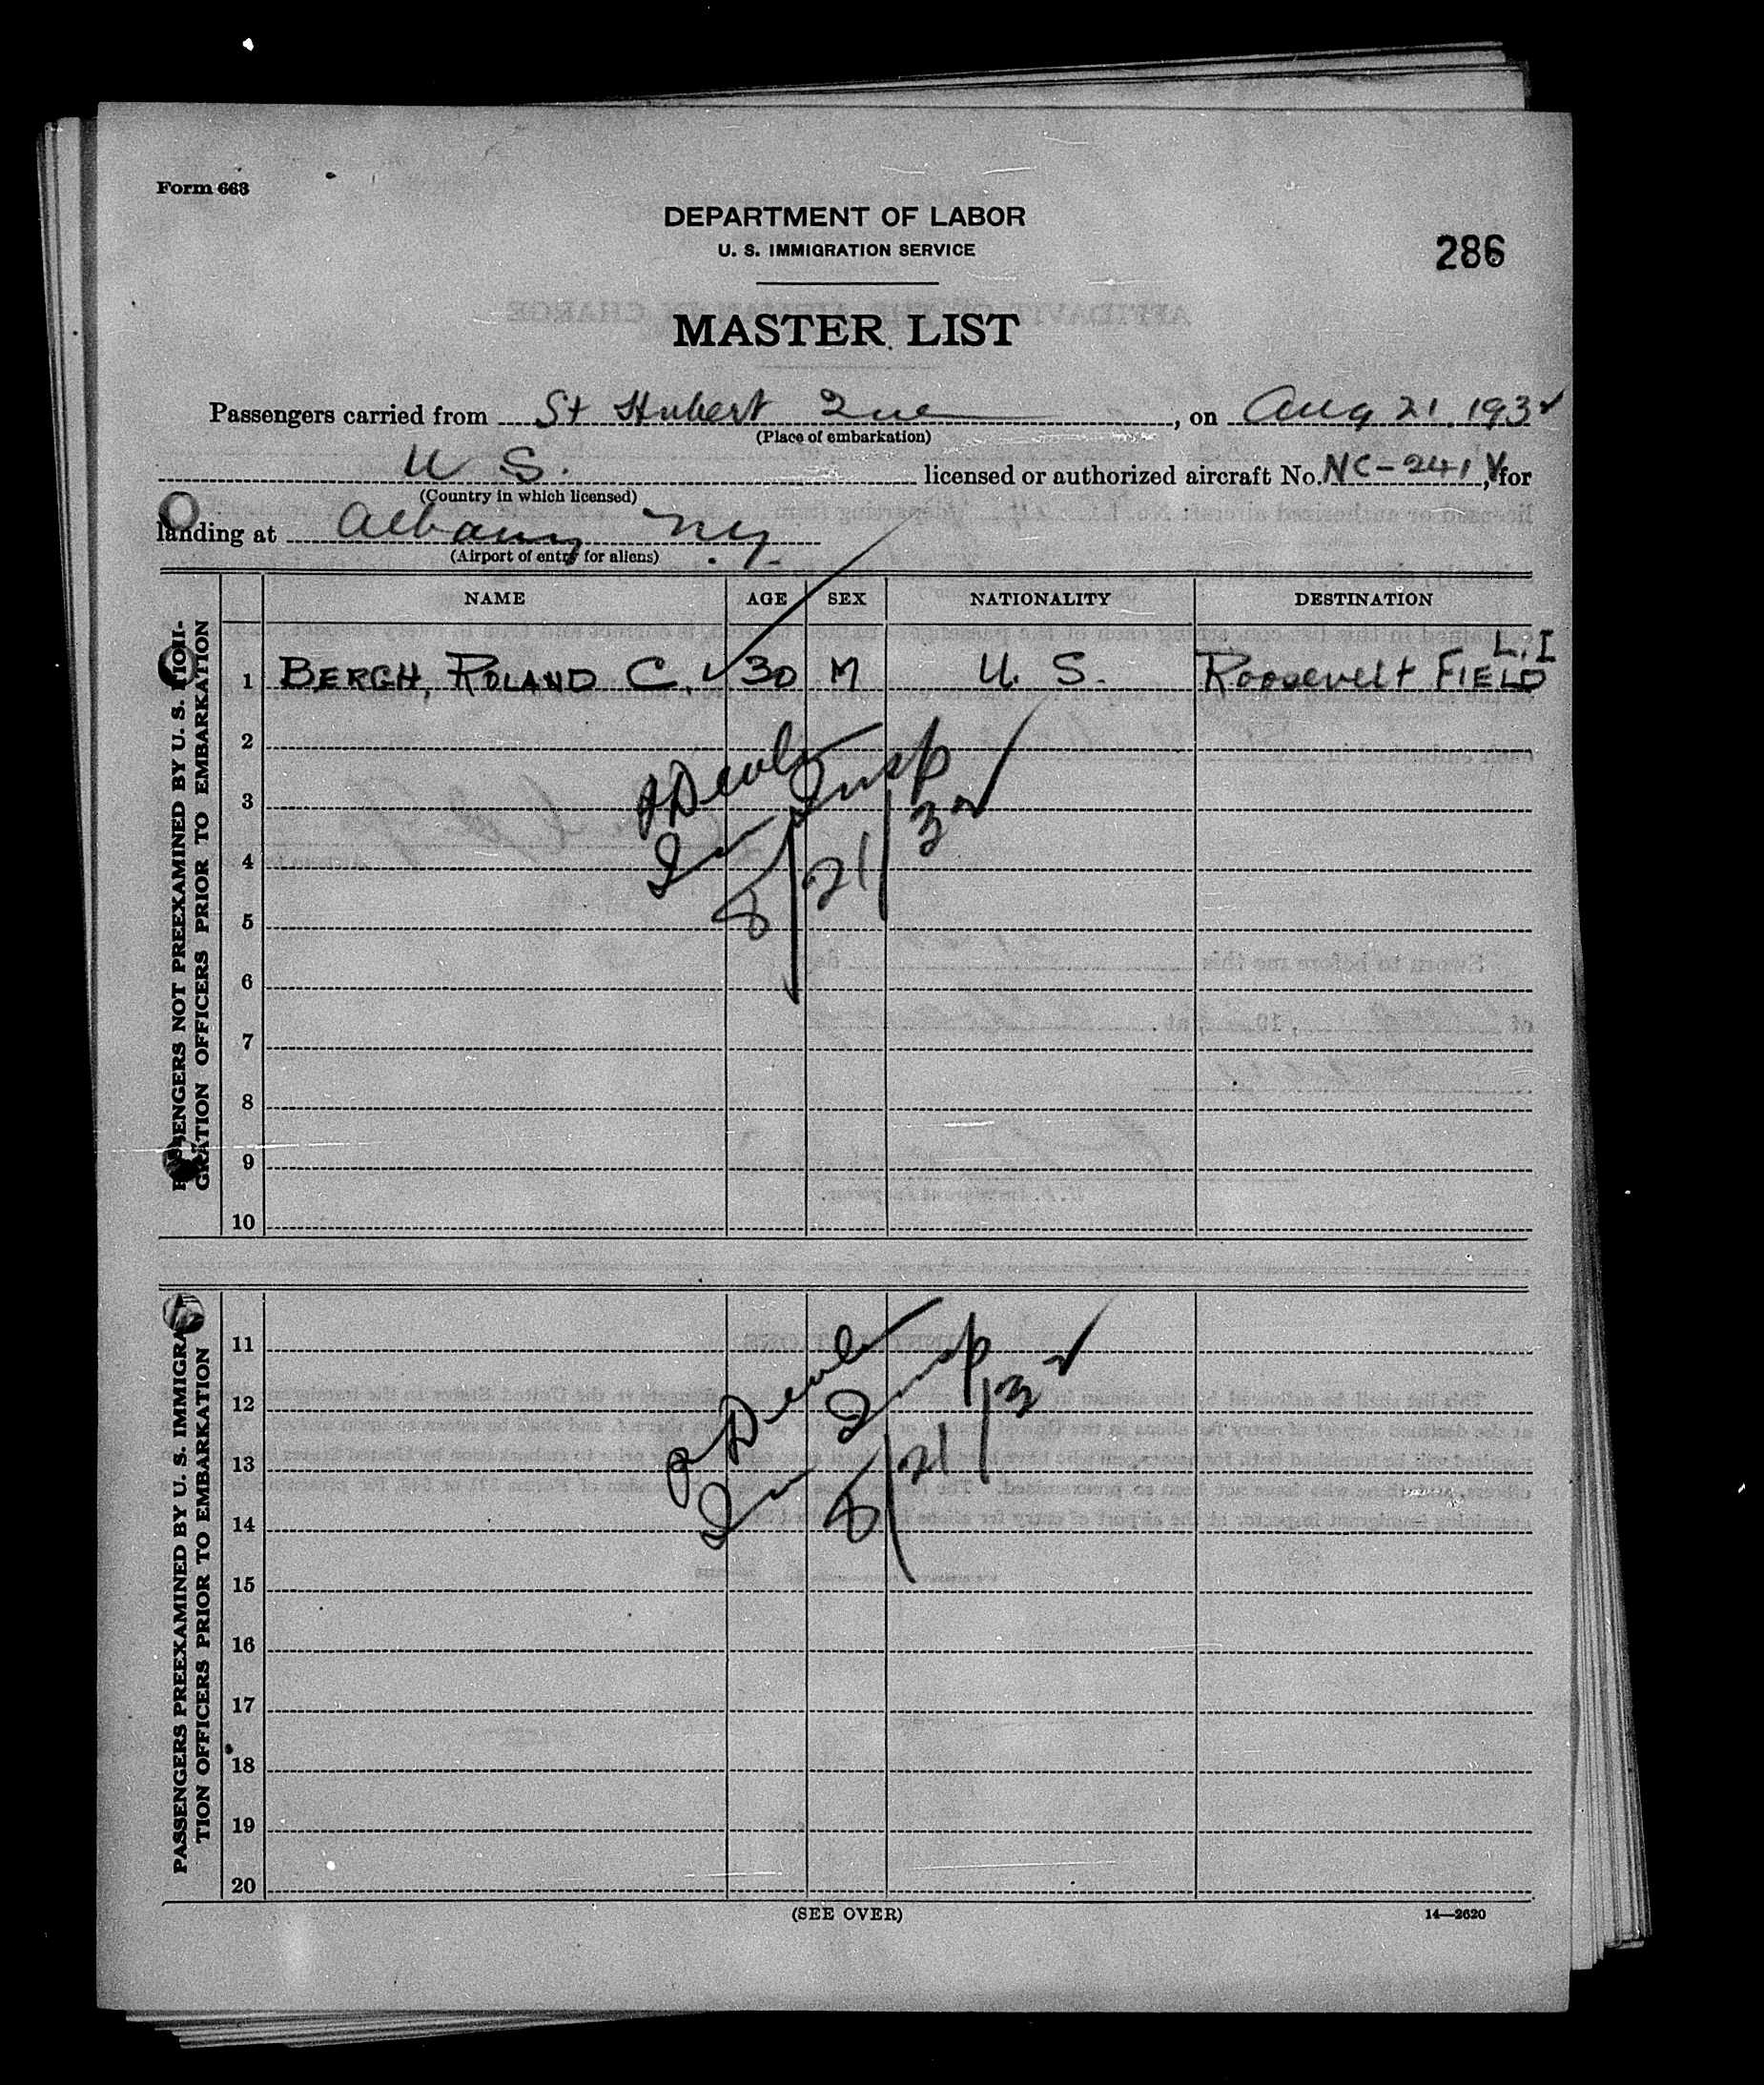 Form 663
DEPARTMENT OF LABOR
U. S. IMMIGRATION SERVICE
286
MASTER LIST
Passengers carried from St Hubert Que, on Aug 21 1932
(Place of embarkation)
U S. licensed or authorized aircraft No. NC-241V, for
(Country in which licensed)
landing at Albany N.Y.
(Airport of entry for aliens)
NAME AGE SEX NATIONALITY DESTINATION
PASSENGERS NOT PREEXAMINED BY U. S. IMMI-
GRATION OFFICERS PRIOR TO EMBARKATION
L.I
1 BERGH, ROLAND C. 30 M U. S. Roosevelt FIELD
2
3
4
5
6
7
8
9
10
Imm Insp
8/21/32
PASSENGERS PREEXAMINED BY U. S. IMMIGRA-
TION OFFICERS PRIOR TO EMBARKATION
11
12
13
14
15
16
17
18
19
20
Imm Insp
8/21/32
(SEE OVER)
14—2620